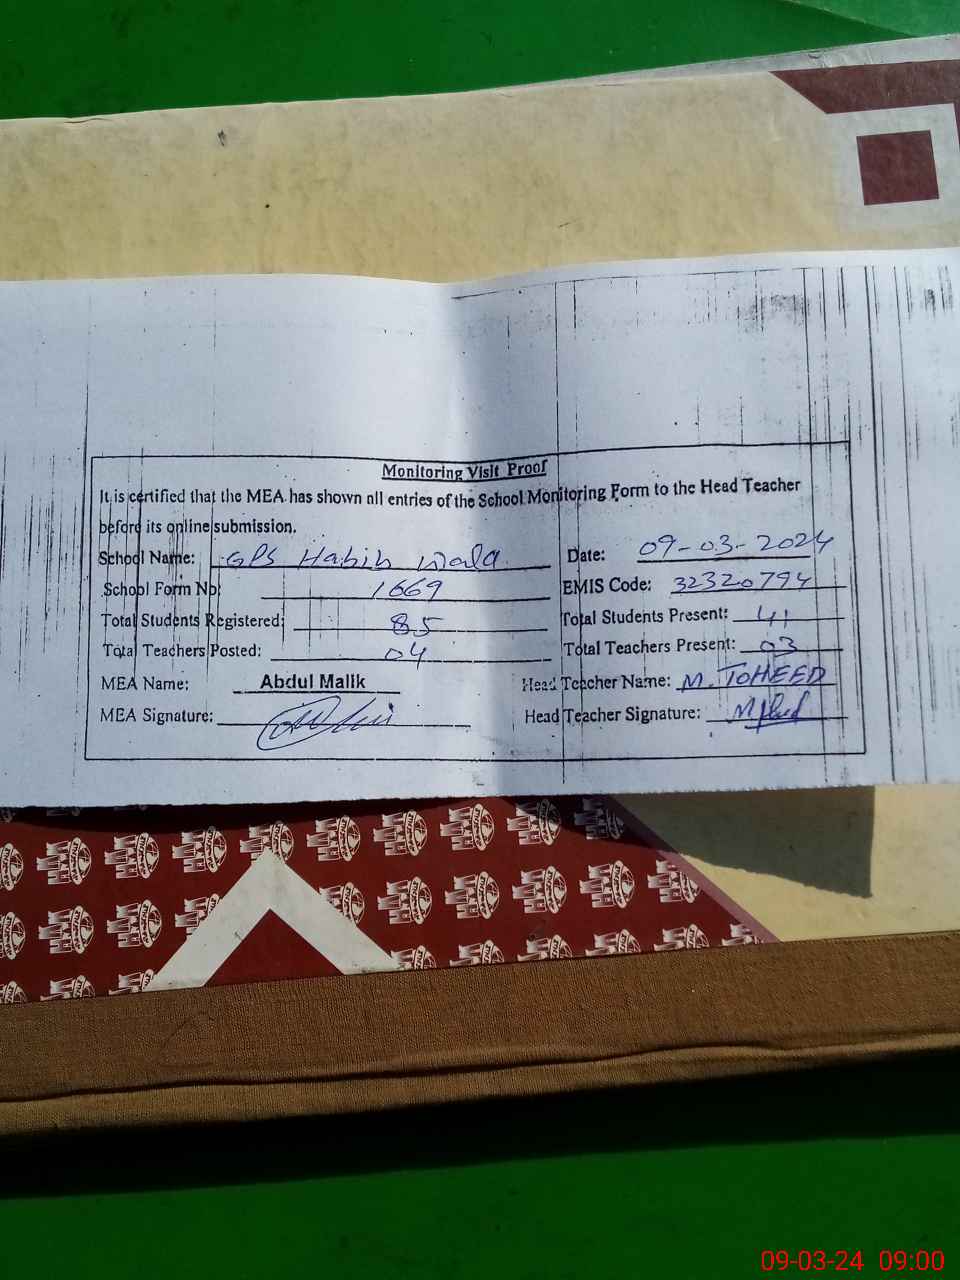 Monitoring Visit Proof
It is certified that the MEA has shown all entries of the School Monitoring Form to the Head Teacher
before its online submission.
School Name: GPS Habib wala Date: 09-03-2024
School Form No: 1669 EMIS Code: 32320794
Total Students Registered: 85 Total Students Present: 41
Total Teachers Posted: 04 Total Teachers Present: 03
MEA Name: Abdul Malik Head Teacher Name: M. TOHEED
MEA Signature: Head Teacher Signature:
09-03-24 09:00